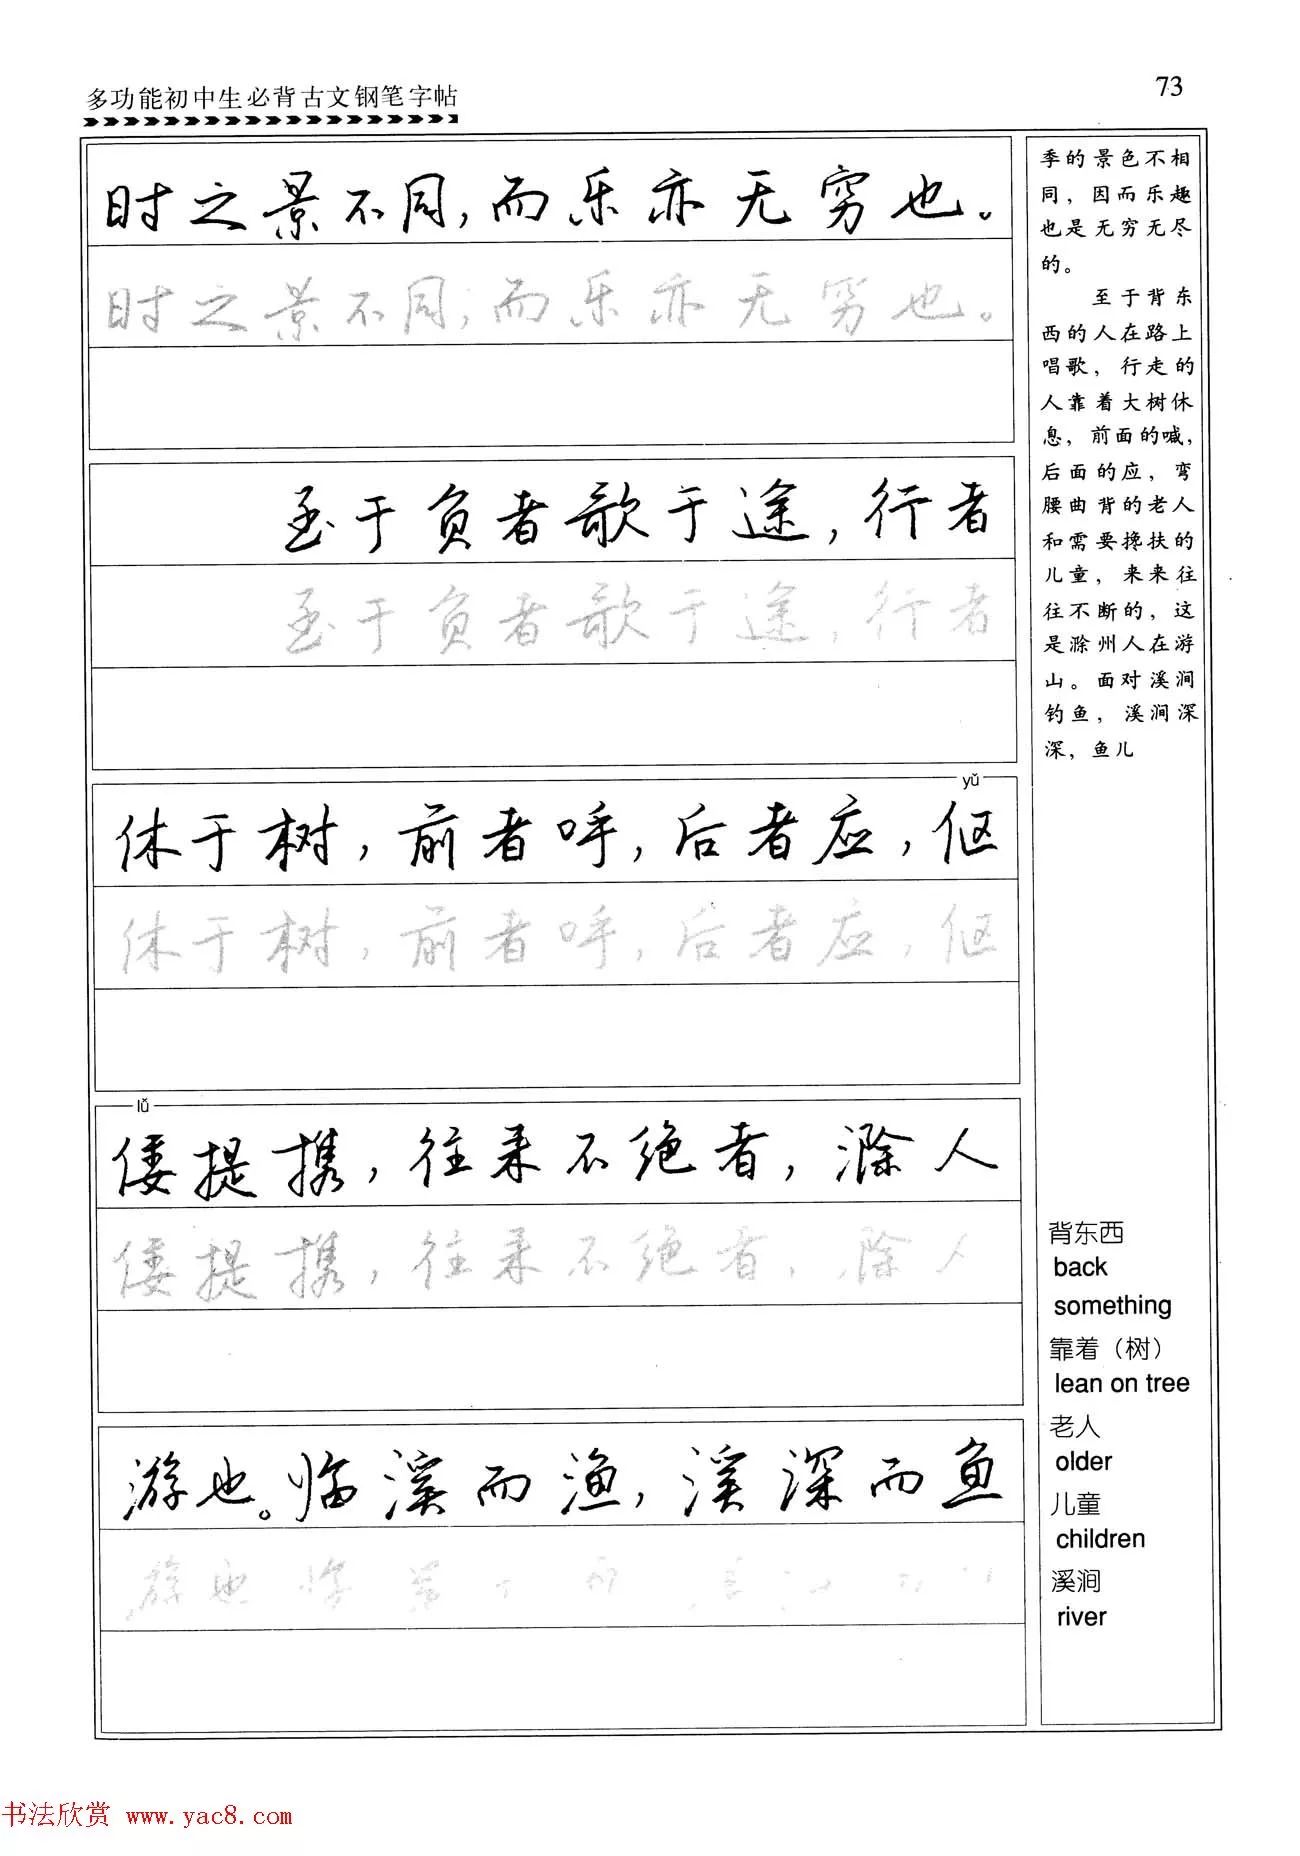 多功能初中生必背古文钢笔字帖
73
时之景不同，而乐亦无穷也。
时之景不同，而乐亦无穷也。
至于负者歌于途，行者
至于负者歌于途，行者
yǔ
休于树，前者呼，后者应，伛
休于树，前者呼，后者应，伛
lǚ
偻提携，往来不绝者，滁人
偻提携，往来不绝者，滁人
游也。临溪而渔，溪深而鱼
游也 临
季的景色不相
同，因而乐趣
也是无穷无尽
的。
至于背东
西的人在路上
唱歌，行走的
人靠着大树休
息，前面的喊，
后面的应，弯
腰曲背的老人
和需要搀扶的
儿童，来来往
往不断的，这
是滁州人在游
山。面对溪涧
钓鱼，溪涧深
深，鱼儿
背东西
back
something
靠着（树）
lean on tree
老人
older
儿童
children
溪涧
river
书法欣赏 www.yac8.com